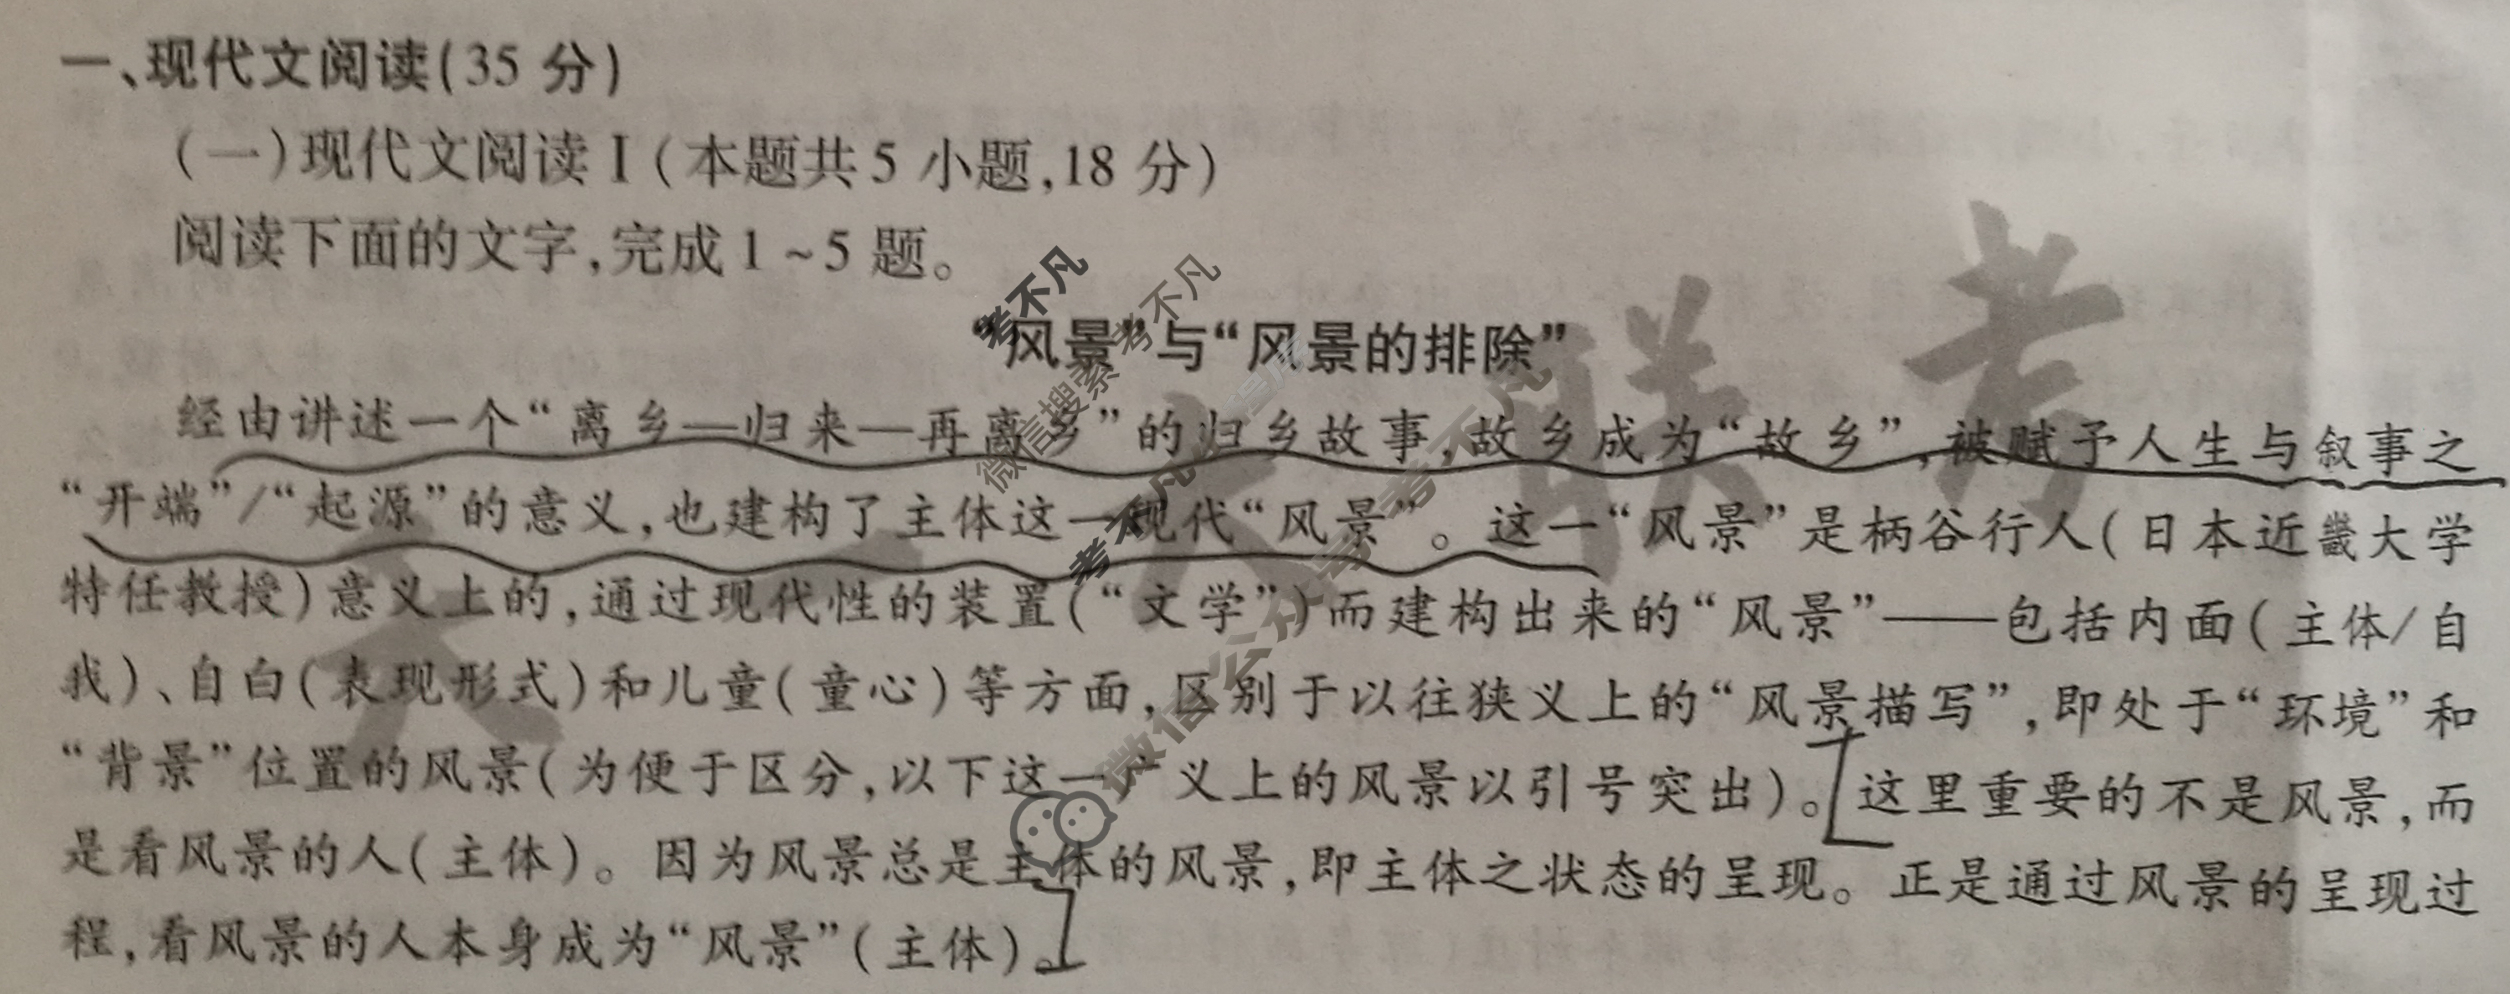 一、现代文阅读(35 分)
(一)现代文阅读Ⅰ(本题共 5 小题,18 分)
阅读下面的文字,完成 1 ~ 5 题。
“风景”与“风景的排除”
经由讲述一个“离乡—归来—再离乡”的归乡故事,故乡成为“故乡”,被赋予人生与叙事之
“开端”/“起源”的意义,也建构了主体这一现代“风景”。这一“风景”是柄谷行人(日本近畿大学
特任教授)意义上的,通过现代性的装置(“文学”)而建构出来的“风景”——包括内面(主体/自
我)、自白(表现形式)和儿童(童心)等方面,区别于以往狭义上的“风景描写”,即处于“环境”和
“背景”位置的风景(为便于区分,以下这一广义上的风景以引号突出)。这里重要的不是风景,而
是看风景的人(主体)。因为风景总是主体的风景,即主体之状态的呈现。正是通过风景的呈现过
程,看风景的人本身成为“风景”(主体)。
考不凡
考不凡
微信搜索
考不凡
考不凡
微信公众号
天一大联考